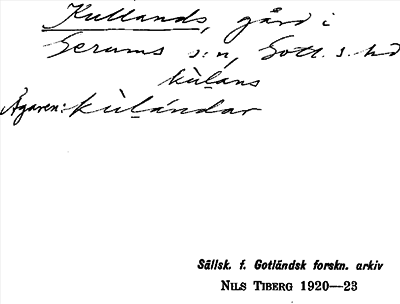 Kullands, gård i
Gerums s:n, Gotl. s. hd
kùlans
Ägaren: kùlándar
Sällsk. f. Gotländsk forskn. arkiv
NILS TIBERG 1920—23